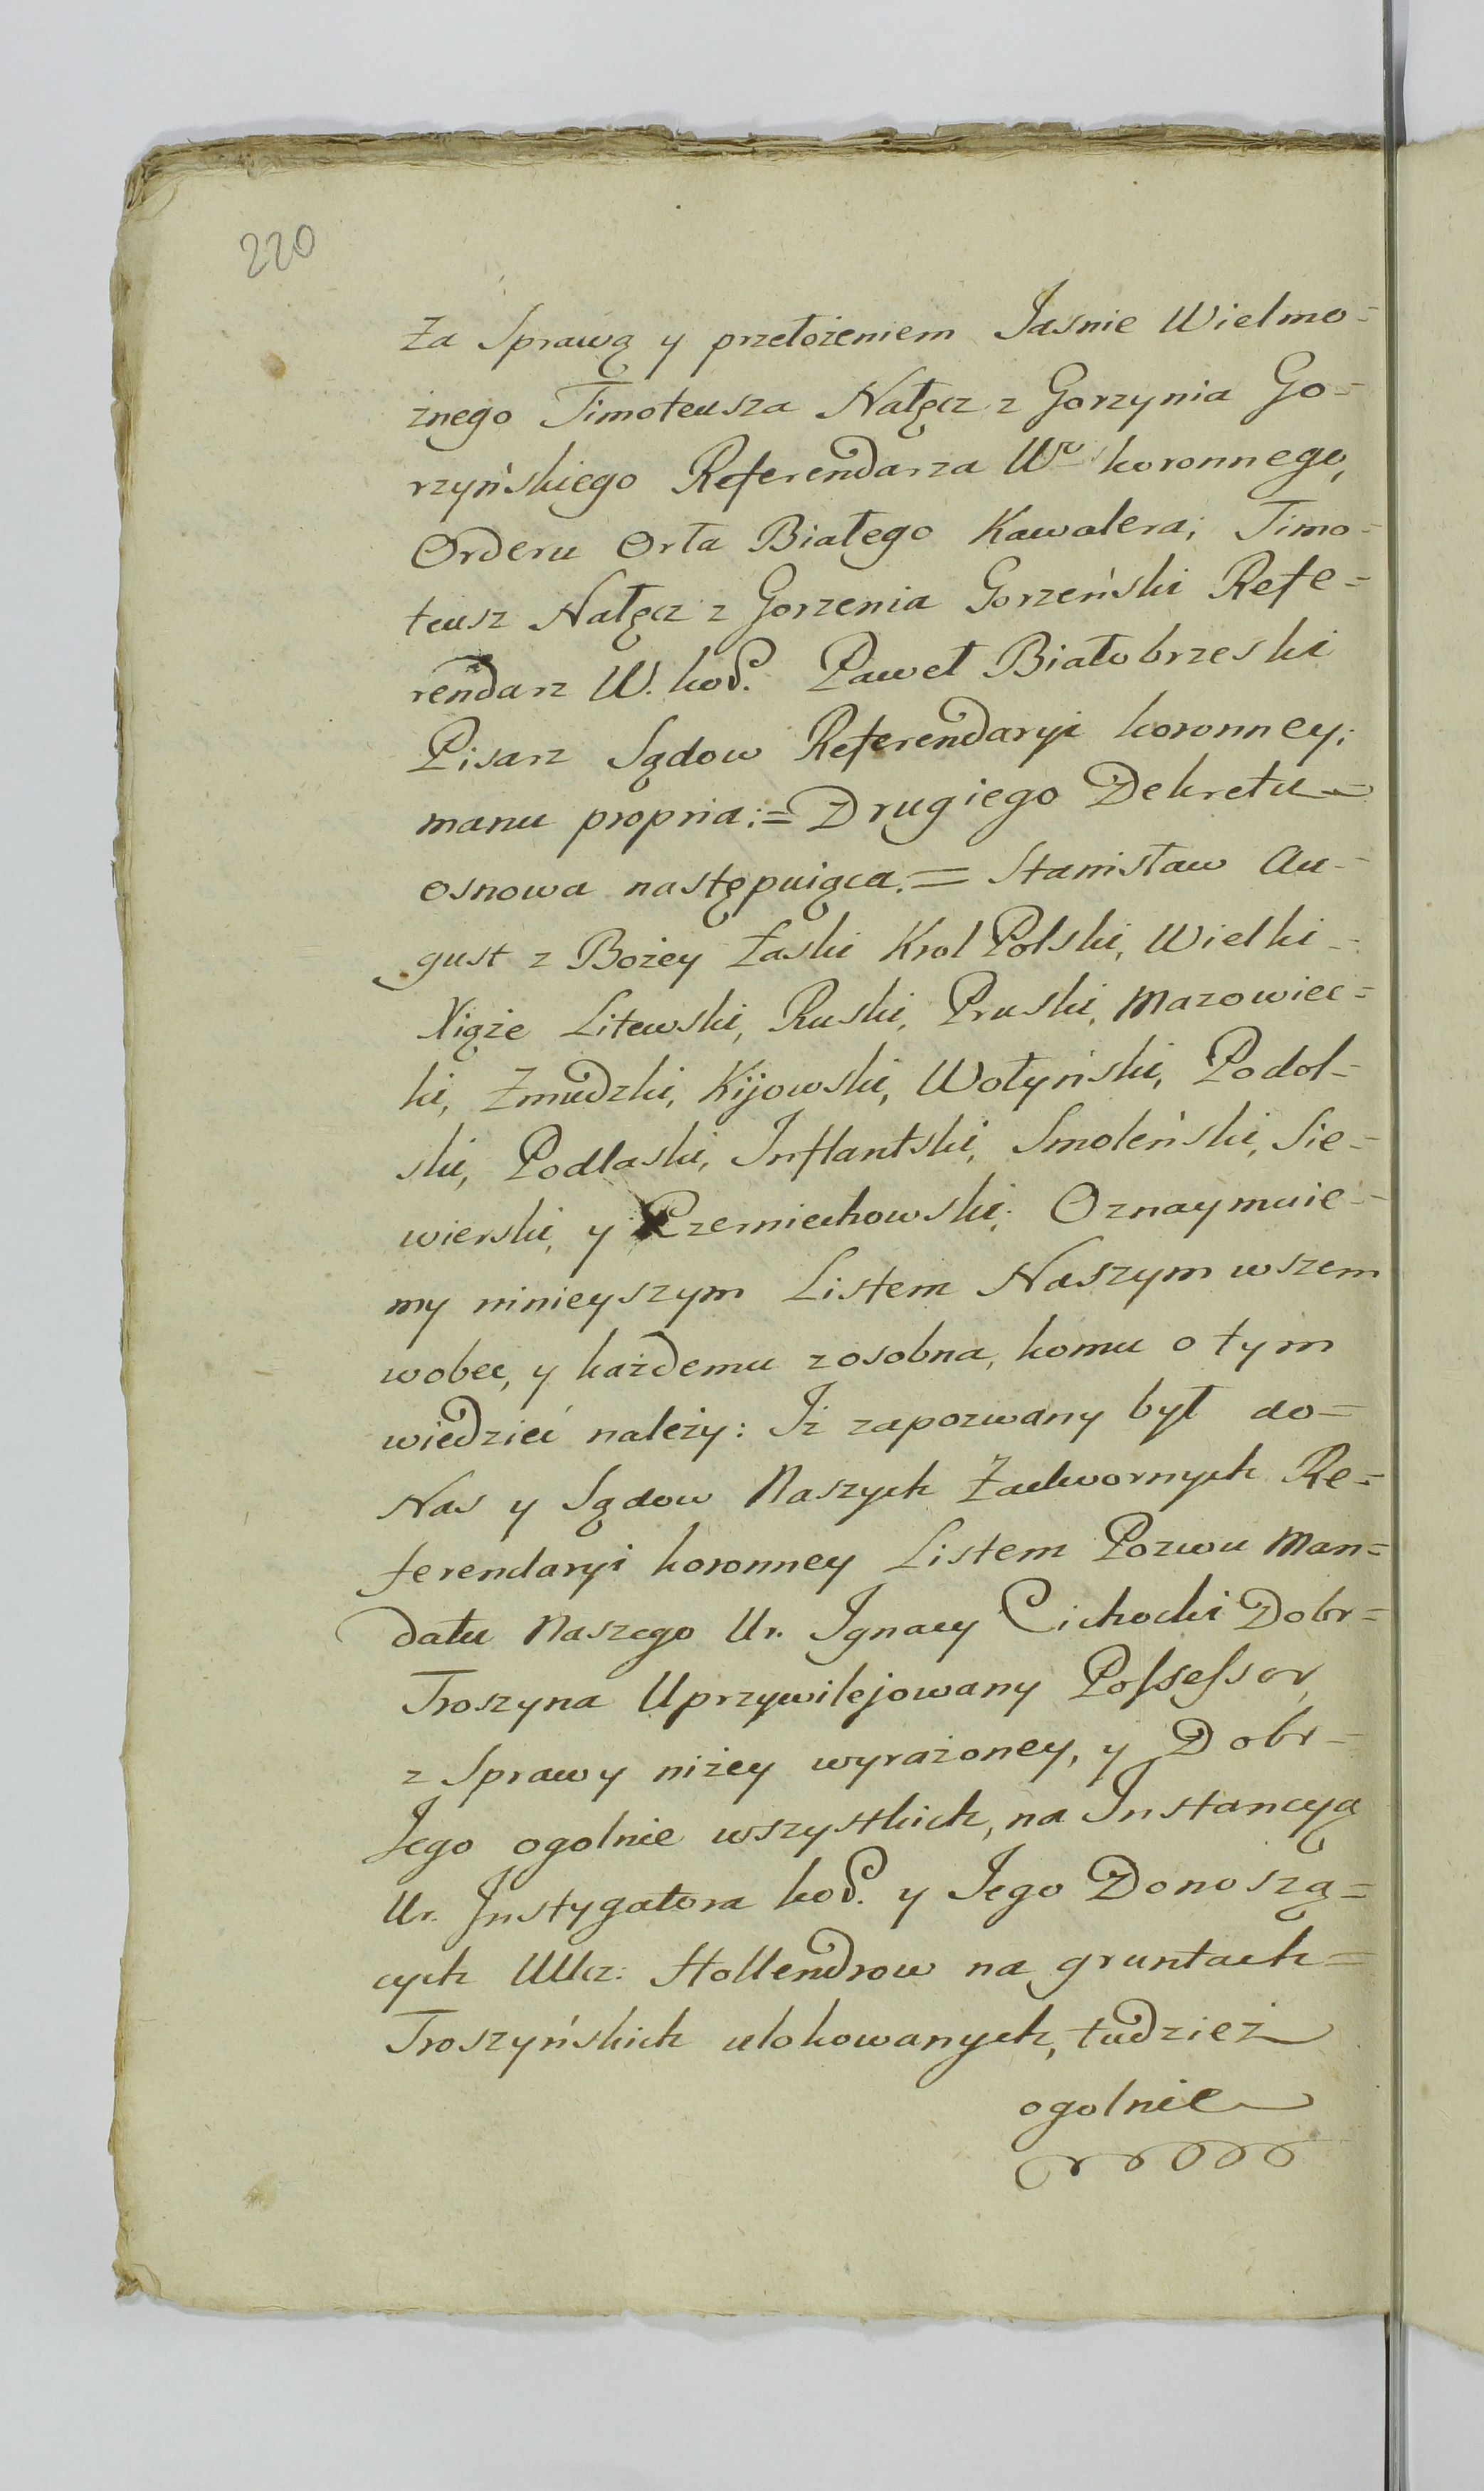 220
Za Sprawą y przełożeniem Jasnie Wielmo=
żnego Timoteusza Nałęcz z Gorzynia Go=
rzyńskiego Referendarza Wo koronnego,
Orderu Orła Białego Kawalera; Timo=
teusz Nałęcz z Gorzenia Gorzeński Refe=
rendarz W. kor. Paweł Białobrzeski
Pisarz Sądow Referendaryi koronney;
manu propria:= Drugiego Dekretu=
osnowa następuiąca.= Stanisław Au=
gust z Bożey łaski Krol Polski, Wielki=
Xiąże Litewski, Ruski, Pruski, Mazowiec=
ki, Zmudzki, Kijowski, Wołyński, Podol=
ski, Podlaski, Inflantski, Smoleński, Sie=
wierski, y Czerniechowski; Oznaymuie=
my ninieyszym Listem Naszym wszem
wobec, y każdemu zosobna, komu o tym
wiedzieć należy: Iż zapozwany był do=
Nas y Sądow Naszych Zadwornych Re=
ferendaryi koronney Listem Pozwu Man=
datu Naszego Ur. Ignacy Cichocki Dobr=
Troszyna Uprzywilejowany Possessor,
z Sprawy niżey wyrażoney, y Dobr=
Jego ogolnie wszystkich, na Instancyą
Ur. Instygatora kor. y Jego Donoszą=
cych Ucz: Hollendrow na gruntach=
Troszyńskich ulokowanych, tudzież
ogolnie